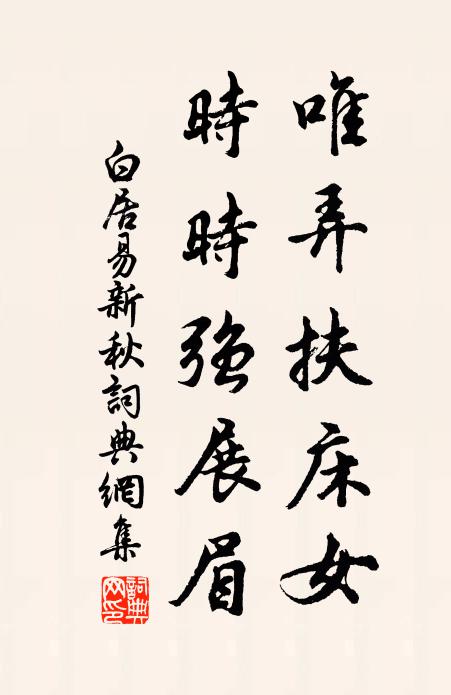 唯弄扶床女
時時強展眉
白居易新秋詞典網集
詞典網印